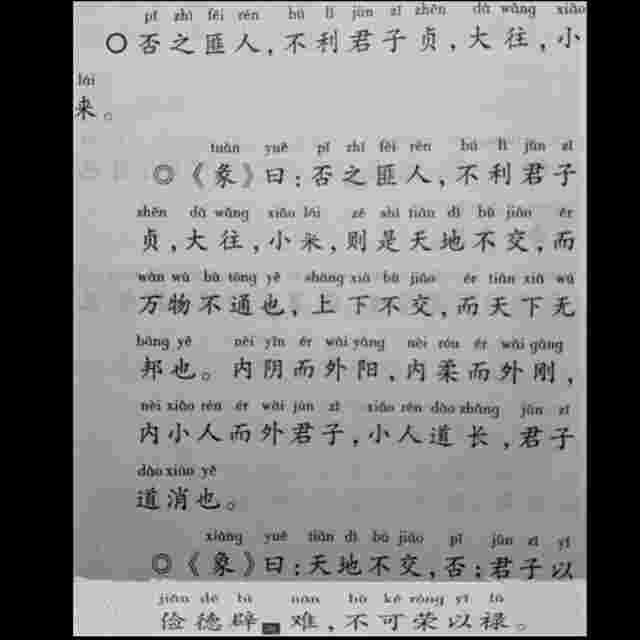 pǐ zhī fěi rén bú lì jūn zǐ zhēn dà wǎng xiǎo
○ 否之匪人，不利君子贞，大往，小
lái
来。
tuàn yuē pǐ zhī fěi rén bú lì jūn zǐ
◎《彖》曰：否之匪人，不利君子
zhēn dà wǎng xiǎo lái zé shì tiān dì bù jiāo ér
贞，大往，小来，则是天地不交，而
wàn wù bù tōng yě shàng xià bù jiāo ér tiān xià wú
万物不通也，上下不交，而天下无
bāng yě nèi yīn ér wài yáng nèi róu ér wài gāng
邦也。内阴而外阳，内柔而外刚，
nèi xiǎo rén ér wài jūn zǐ xiǎo rén dào zhǎng jūn zǐ
内小人而外君子，小人道长，君子
dào xiāo yě
道消也。
xiàng yuē tiān dì bù jiāo pǐ jūn zǐ yǐ
◎《象》曰：天地不交，否；君子以
jiǎn dé bì nàn bù kě róng yǐ lù
俭德辟难，不可荣以禄。